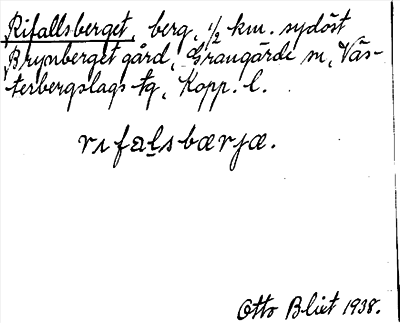 Rifallsberget, berg, 1/2 km. sydöst
Brynberget gård, Grangärde sn, Väs-
terbergslags tg, Kopp. l.
rifalsbærjæ.
Otto Blixt 1938.